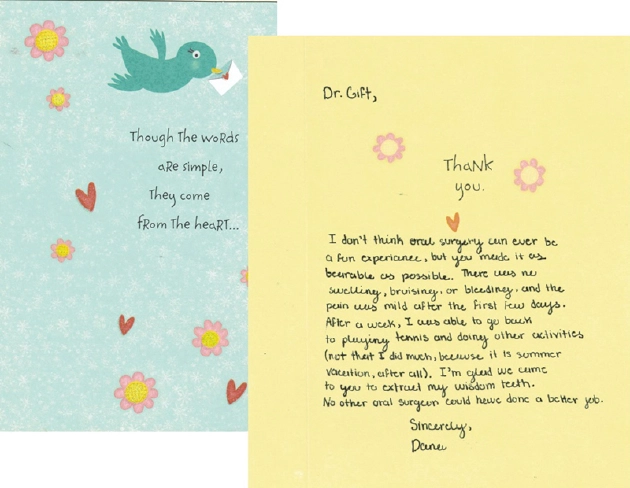 Though The woRds
aRe simple,
They come
fRom The heaRT...
Dr. Gift,
ThaNk
you.
I don't think oral surgery can ever be
a fun experiance, but you made it as
bearable as possible. There was no
swelling, bruising, or bleeding, and the
pain was mild after the first few days.
After a week, I was able to go back
to playing tennis and doing other activities
(not that I did much, because it is summer
vacation, after all). I'm glad we came
to you to extract my wisdom teeth.
No other oral surgeon could have done a better job.
Sincerely,